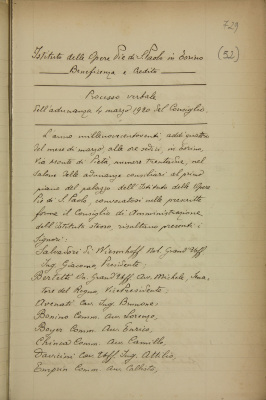 729
Istituto delle Opere Pie di S. Paolo in Torino
(52)
Beneficenza e Credito
Processo verbale
dell'adunanza 4 marzo 1920 del Consiglio
L'anno millenovecentoventi addì quattro
del mese di marzo, alle ore sedici, in Torino,
Via Monte di Pietà numero trentadue, nel
Salone delle adunanze consiliari al primo
piano del palazzo dell'Istituto delle Opere
Pie di S. Paolo, convocatosi nelle prescritte
forme il Consiglio di Amministrazione
dell'Istituto stesso, risultano presenti i
Signori:
Salvadori di Wiesenhoff Nob. Grand'Uff.
Ing. Giacomo, Presidente,
Bertetti Grand'Uff. Avv. Michele, Sena-
tore del Regno, Vice Presidente,
Avenati Cav. Ing.
Bonino Comm. Avv. Lorenzo,
Boyer Comm. Avv. Enrico,
Comm. Avv. Camillo,
Cav. Uff. Ing. Attilio,
Comm. Avv.